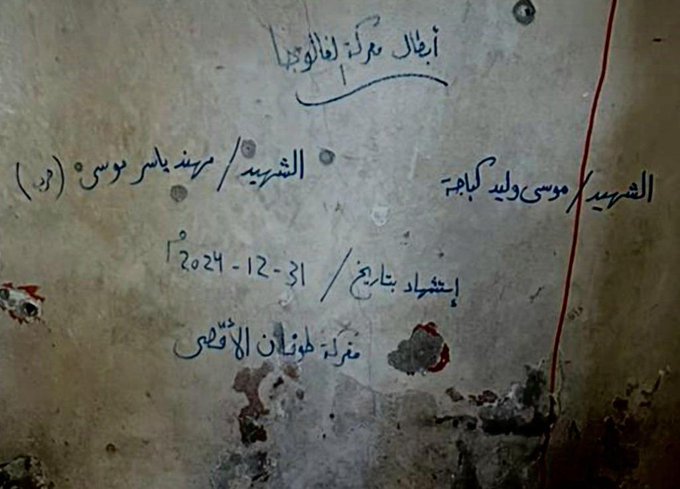 أبطال معركة الفالوجا
الشهيد/ موسى وليد كباجة
الشهيد/ مهند ياسر موسى (حرب)
إستشهاد بتاريخ/ 31-12-2024م
معركة طوفان الأقصى